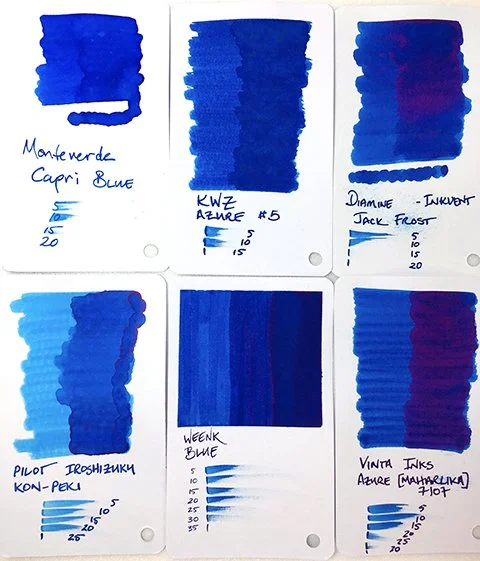 Monteverde
Capri Blue
5
10
15
20
KWZ
AZURE #5
5
10
15
DIAMINE - INKVENT
JACK FROST
5
10
15
20
PILOT IROSHIZUKU
KON-PEKI
5
10
15
20
25
WEENK
BLUE
5
10
15
20
25
30
35
VINTA INKS
AZURE [MAHARLIKA]
7107
5
10
15
20
25
30